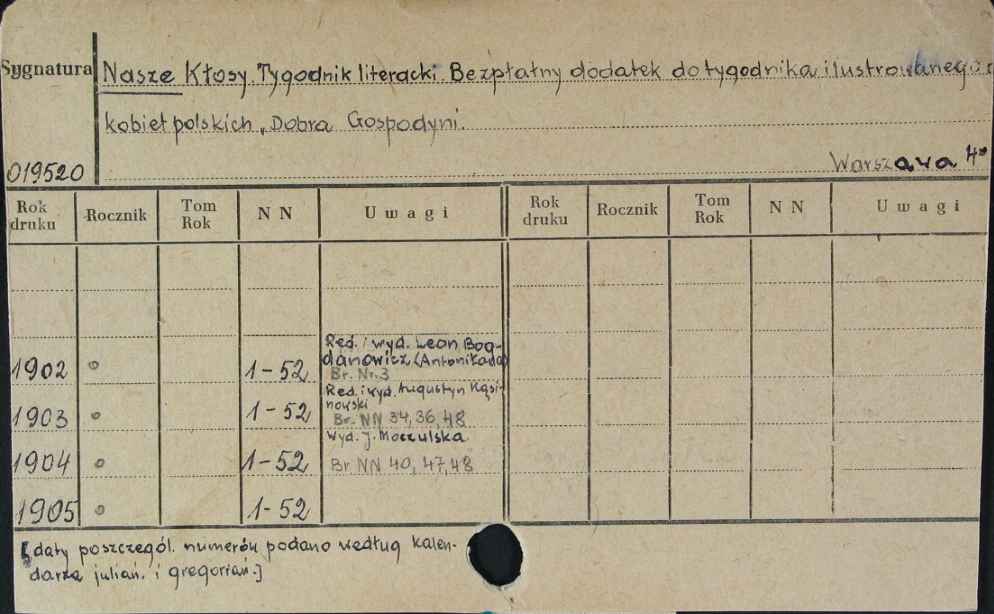 Sygnatura Nasze Kłosy. Tygodnik literacki. Bezpłatny dodatek do tygodnika ilustrowanego
kobiet polskich „Dobra Gospodyni.
019520 Warszawa 4°
Rok druku Rocznik Tom Rok NN Uwagi Rok druku Rocznik Tom Rok NN Uwagi
Red. i wyd. Leon Bog-
danowicz
1902 1-52 Br. Nr. 3
Red. i wyd. Augustyn Kąsi-
nowski
1903 1-52 Br. NN 34, 36, 48
Wyd. J. Moczulska
1904 1-52 Br NN 40, 47, 48
1905 1-52
[daty poszczegól. numerów podano według kalen-
darza juliań. i gregoriań.]